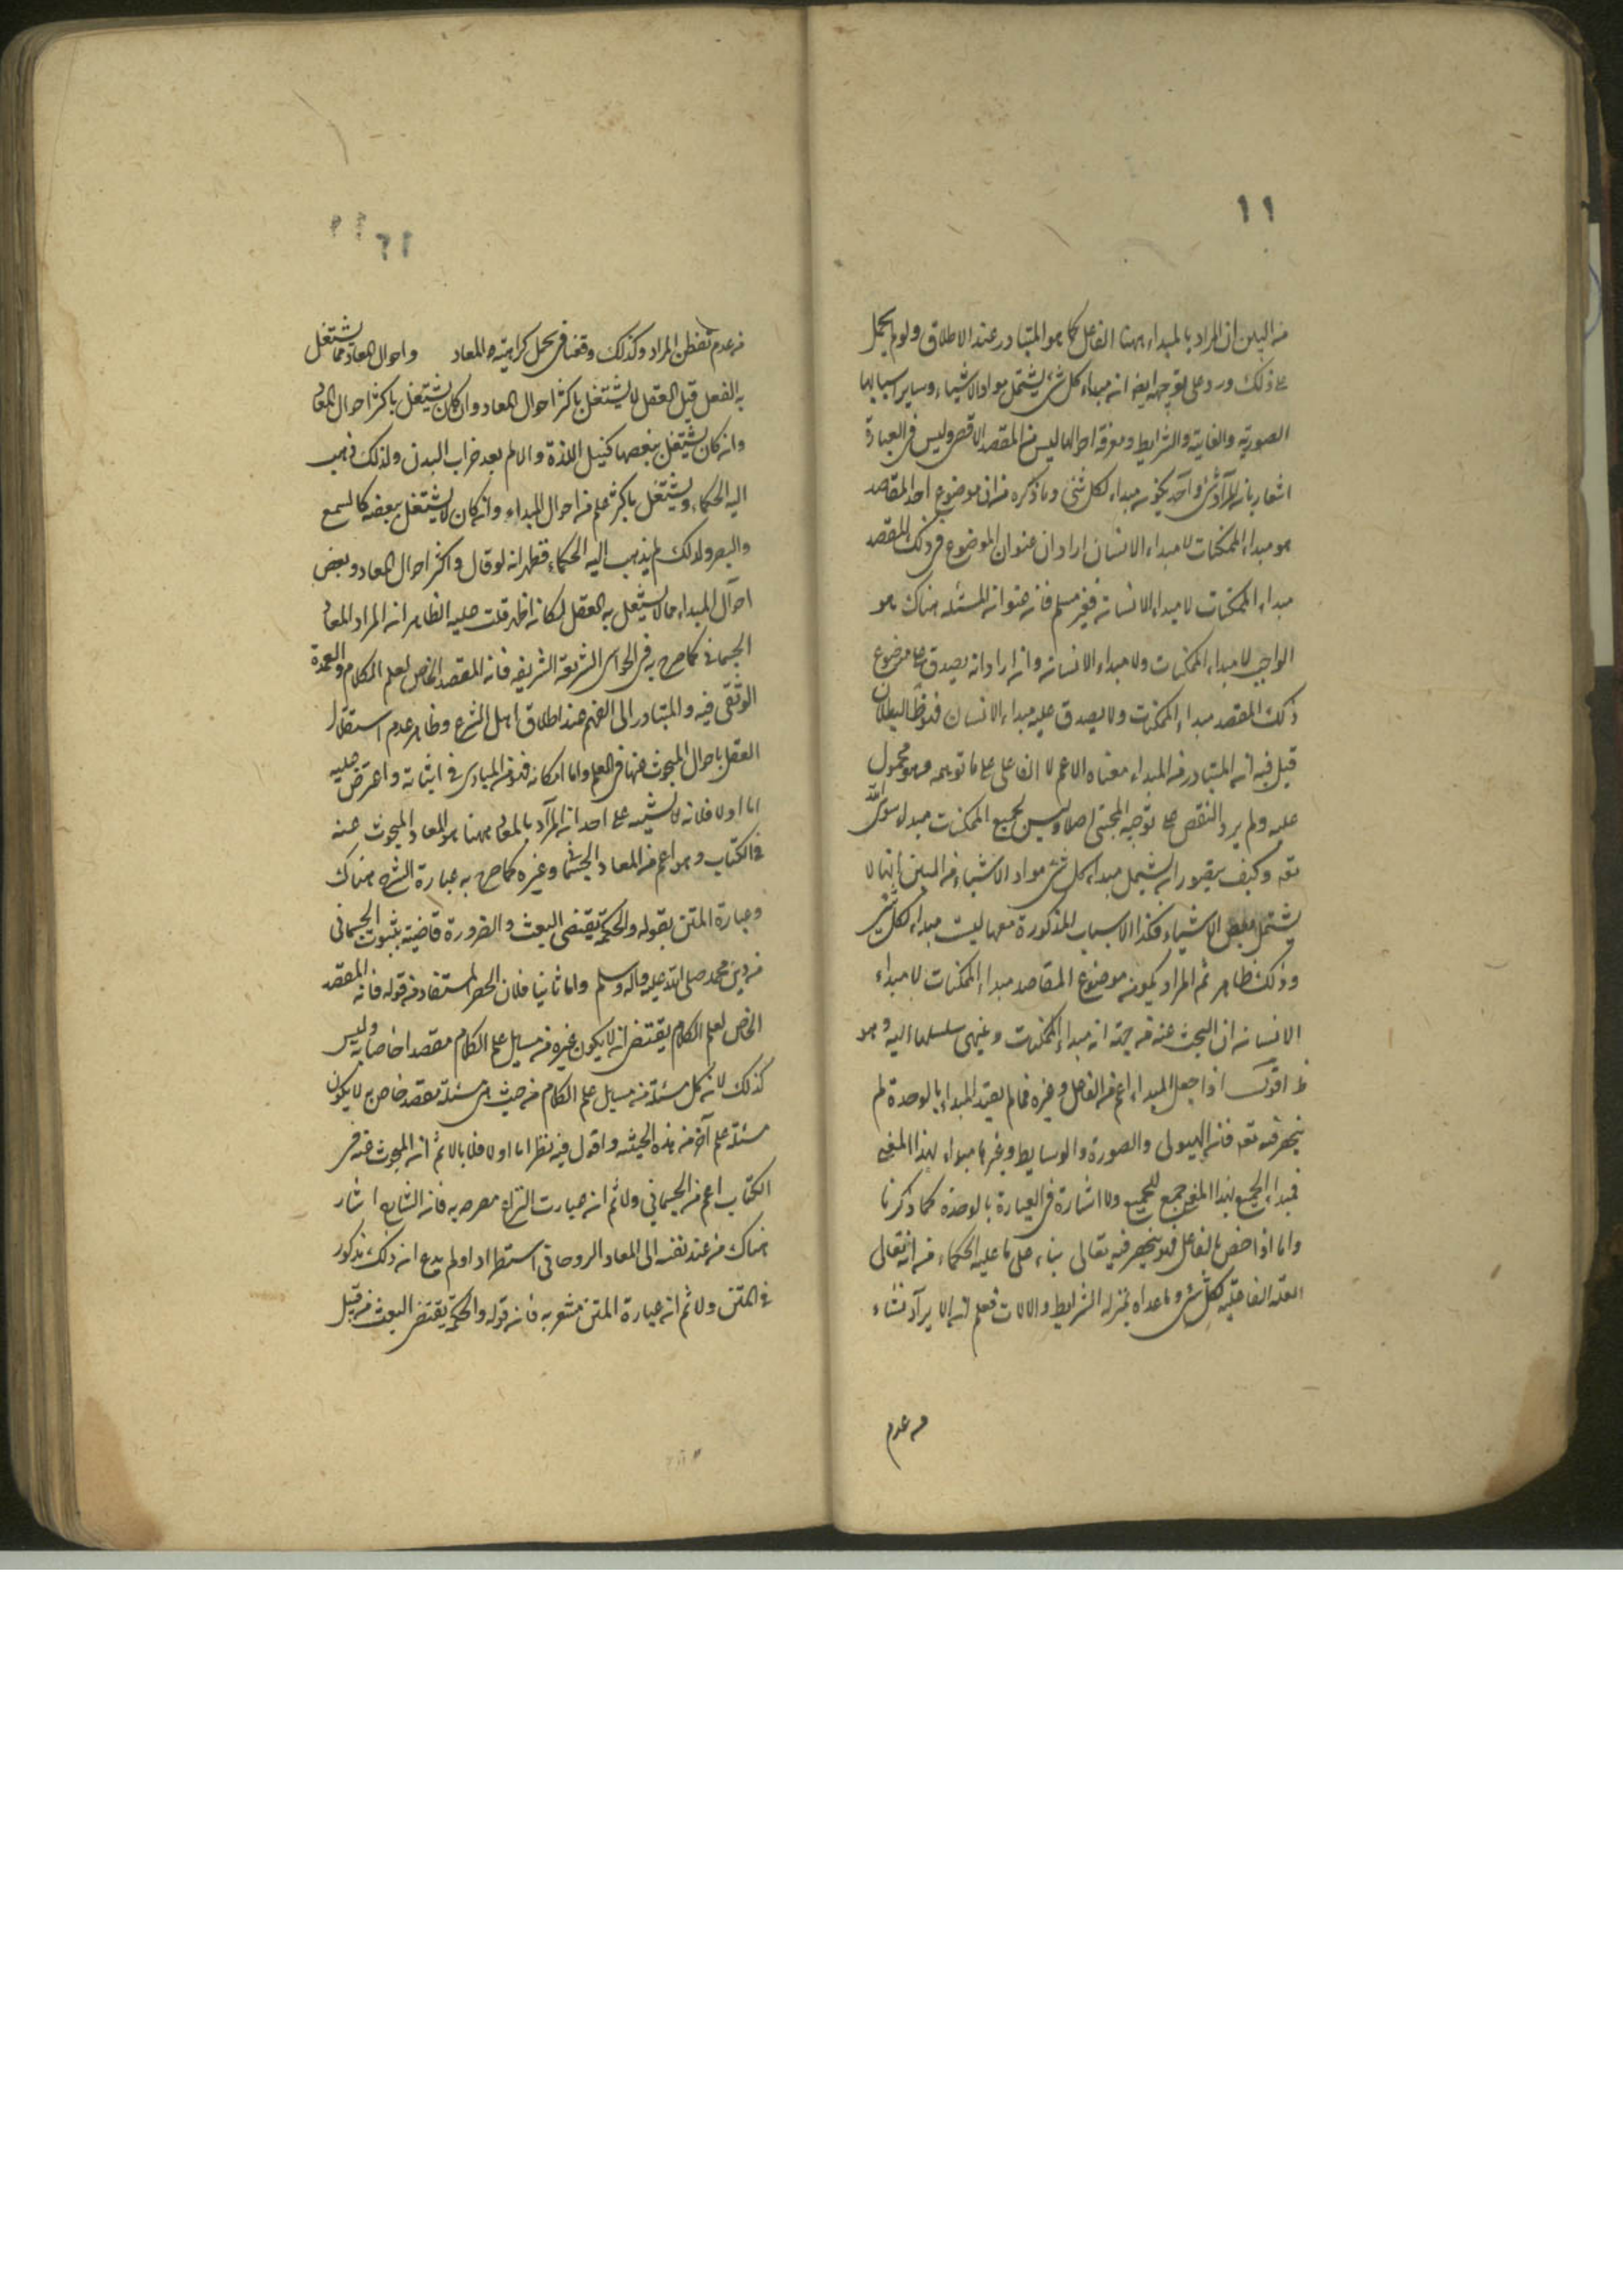 ١١
من البين ان المراد بالمبداء ههنا الفاعل كما هو المتبادر عند الاطلاق ولو لم يحمل
على ذلك ورد على توجيهه ايضا انه مبداء كل شئ يشتمل مواد الاشياء وساير اسبابها
الصورية والغايية والشرايط ومعرفة احوالها ليس من المقصد الاقصى وليس في العبارة
اشعار بانه المراد شئ واحد يكون مبداء لكل شئ وما ذكره من ان موضوع احد المقاصد
هو مبداء الممكنات لا مبداء الانسان ان اراد ان عنوان الموضوع في ذلك المقصد
مبداء الممكنات لا مبداء الانسان فغير مسلم فان عنوان المسئلة هناك هو
الواجب لا مبداء الممكنات ولا مبداء الانسان وان اراد انه يصدق على موضوع
ذلك المقصد مبداء الممكنات ولا يصدق عليه مبداء الانسان فهو ظ البطلان
قيل فيه ان المتبادر من المبداء معناه الاعم لا الفاعل على ما توهمه وهو محمول
عليه ولم يرد النقض على توجيه المحشى اصلا وليس لجميع الممكنات مبداء سوى الله
تعه وكيف يتصور ان يشمل مبداء كل شئ مواد الاشياء من المبين انها لا
يشتمل بعض الاشياء فكذا الاسباب المذكورة معها ليست مبداء لكل شئ
وذلك ظاهر ثم المراد بكون موضوع المقاصد مبداء الممكنات لا مبداء
الانسان ان البحث عنه من جهة انه مبداء الممكنات وينتهى سلسلها اليه وهو
ظ اقول اذا جعل المبداء اعم من الفاعل وغيره فما لم يقيد المبداء بالوحدة لم
ينحصر فيه تعه فان الهيولى والصورة والوسايط وغيرها مبداء لهذا المعنى
فمبداء الجميع لهذا المعنى جميع للجميع ولا اشارة في العبارة بالوحدة كما ذكرنا
واما اذا خص بالفاعل فهو ينحصر فيه تعالى بناء على ما عليه الحكماء من انه تعالى
العلة الفاعلية لكل شئ وما عداه بمنزلة الشرايط والالات فعلم ان الايراد نشاء
من عدم
١٢
من عدم تفطن المراد وكذلك وقعنا في المعاد واحوال المعاد مما يشتغل
به الفعل قيل العقل لا يشتغل باكثر احوال المعاد وان كان يشتغل باكثر احوال المعا
وان كان يشتغل ببعضها كنيل اللذة والالم بعد خراب البدن ولذلك ذهب
اليه الحكماء ويشتغل باكثر علم من احوال المبداء وان كان لا يشتغل ببعضه كالسمع
والبصر ولذلك لم يذهب اليه الحكماء فظهر انه لو قال واكثر احوال المعاد وبعض
احوال المبداء مما لا يشتغل به العقل لكان اظهر قلت عليه الظاهر انه المراد المعاد
الجسمانى كما صرح به في الحواشى الشريفة الشريفه فانه المقصد الخاص لعلم الكلام والعمدة
الوثقى فيه والمتبادر الى الفهم عند اطلاق اهل الشرع وظاهر عدم استقلال
العقل باحوال المبحوث عنها في العلم واما امكانه فهو من المبادى في اثباته واعترض عليه
اما اولا فلانه لا يشتبه على احد ان المراد بالمعاد ههنا هو المعاد المبحوث عنه
في الكتاب وهو اعم من المعاد الجسمانى وغيره كما صرح به عبارة الشرح هناك
وعبارة المتن بقوله والحكمة يقتضى البعث والضرورة قاضية بثبوت الجسمانى
من دين محمد صلى الله عليه واله وسلم واما ثانيا فلان الحصر المستفاد من قوله فانه المقصد
الخاص لعلم الكلام يقتضى ان لا يكون غيره من مسايل علم الكلام مقصدا خاصا به وليس
كذلك لان كل مسئلة من مسايل علم الكلام من حيث هى مسئلة مقصد خاص به لا يكون
مسئلة علم آخر من هذه الحيثية واقول فيه نظر اما اولا فلانا لا نم ان المبحوث عنه في
الكتاب اعم من الجسمانى ولا نم ان عبارت الشرح مصرح به فان الشارح اشار
هناك من عند نفسه الى المعاد الروحانى استطرادا ولم يدع ان ذلك مذكور
في المتن ولا نم ان عبارة المتن مشعر به فان قوله والحكمة يقتضى البعث من قبيل